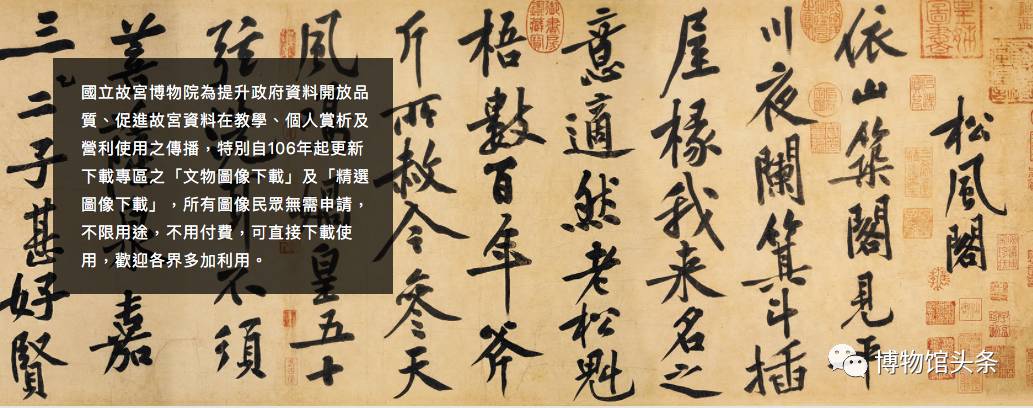 松風閣
依山築閣見平
川夜闌箕斗插
屋椽我来名之
意適然老松魁
梧數百年斧
斤所赦令參天
風鳴媧皇五十
弦洗耳不須
菩薩泉嘉
三二子甚好賢
國立故宮博物院為提升政府資料開放品
質、促進故宮資料在教學、個人賞析及
營利使用之傳播，特別自106年起更新
下載專區之「文物圖像下載」及「精選
圖像下載」，所有圖像民眾無需申請，
不限用途，不用付費，可直接下載使
用，歡迎各界多加利用。
博物馆头条